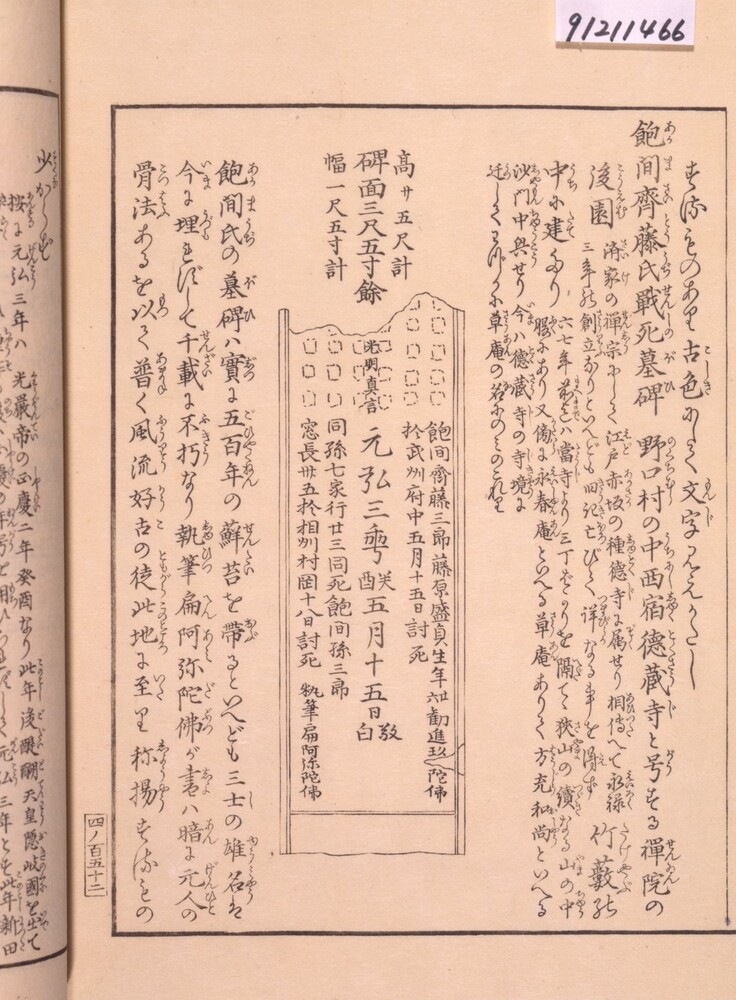 91211466
するものあり古色にして文字見えかたし
飽間齊藤氏戰死墓碑 野口村の中西宿德蔵寺と号する禪院の
後園 済家の禪宗にして江戸赤坂の種德寺に属せり相傳へて永禄
三年の創立なりといへども旧記亡びて詳なる事を得ず
竹藪の
中に建たり
六七年前迄は當寺より三丁ばかりを隔て狹山の續なる山の中
腰にあり又傍に永春庵といへる草庵ありて方充和尚といへる
沙門中興せり今ハ德蔵寺の寺境に
迁して
草庵の名にのミ
高サ五尺計
碑面三尺五寸餘
幅一尺五寸計
光明真言
飽間齊藤三郎藤原盛貞生年廿六勸進玖阿陀佛
於武州府中五月十五日討死
元弘三年癸酉五月十五日敬白
同孫七家行廿三同死飽間孫三郎
宗長卅五於相州村岡十八日討死 執筆扁阿弥陀佛
飽間氏の墓碑ハ實に五百年の蘚苔を帶るといへども三士の雄名は
今に埋れずして千載に不朽なり執筆扁阿弥陀佛が書ハ暗に元人の
骨法あるを以て普く風流好古の徒此地に至り称揚するもの
四ノ百五十二
少からず
按に元弘三年ハ光厳帝の正慶二年癸酉なり此年後醍醐天皇隠岐國を出て
元弘三年とす此年新田